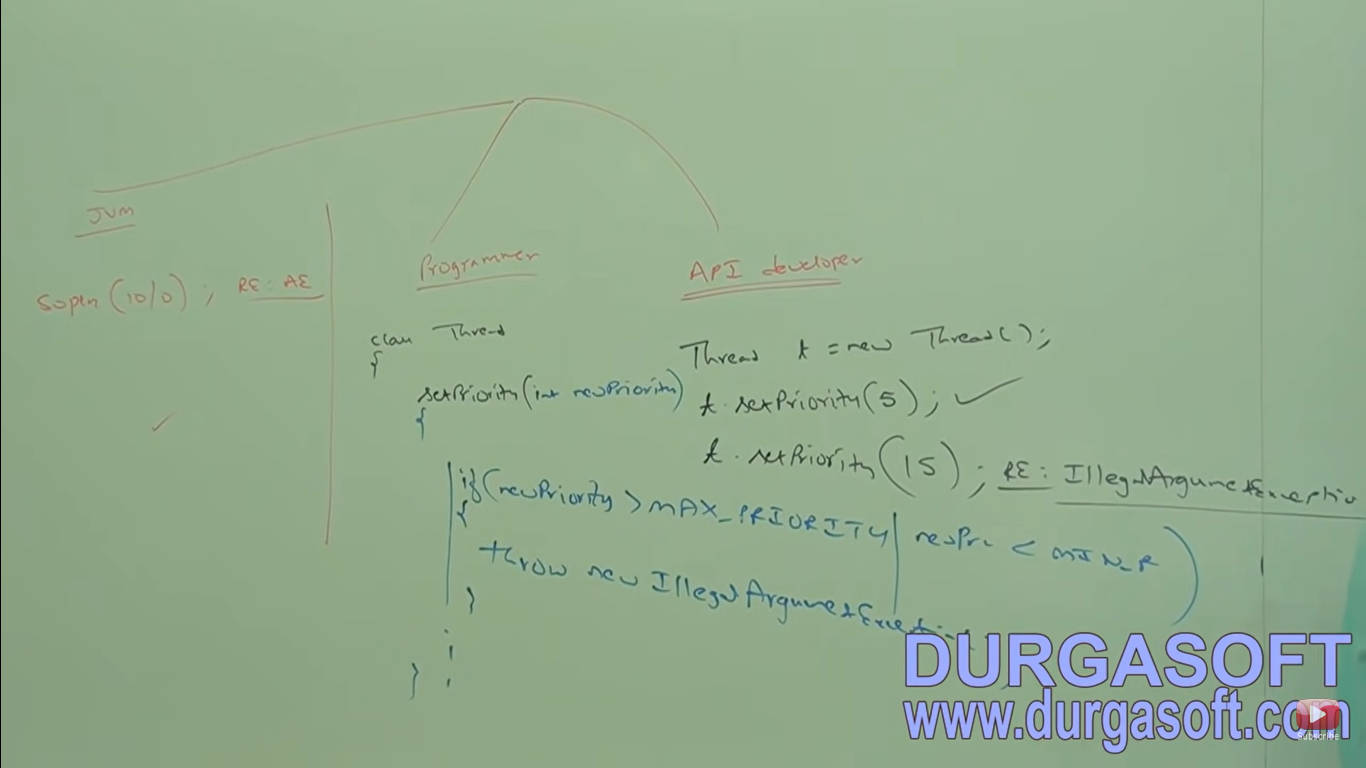 JVM
Sopln (10/0) ; RE: AE
Programmer
API developer
class Thread
{
setPriority(int newPriority)
{
if(newPriority > MAX_PRIORITY | newPri < MIN_P )
{
throw new IllegalArgumentException
}
}
Thread t = new Thread();
t.setPriority(5); ✓
t.setPriority(15); RE: IllegalArgumentExceptio
DURGASOFT
www.durgasoft.com
Subscribe